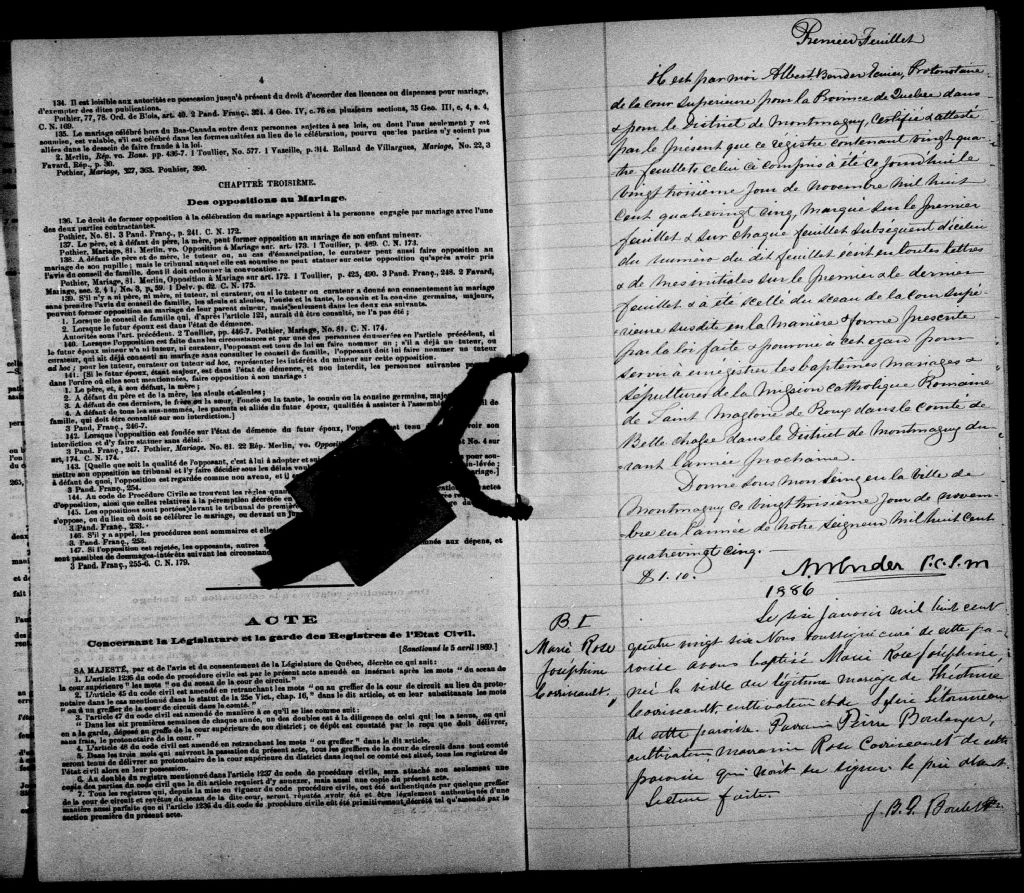 4
134. Il est loisible aux autorités en possession jusqu'à présent du droit d'accorder des licences ou dispenses pour mariage,
d'exempter des dites publications.
Pothier, 77, 78. Ord. de Blois, art. 40. 2 Pand. Franç. 324. 4 Geo. IV, c. 76 en plusieurs sections, 35 Geo. III, c, 4, s. 4,
C. N. 169.
135. Le mariage célébré hors du Bas-Canada entre deux personnes sujettes à ses lois, ou dont l'une seulement y est
soumise, est valable, s'il est célébré dans les formes usitées au lieu de la célébration, pourvu que les parties n'y soient pas
allées dans le dessein de faire fraude à la loi.
2 Merlin, Rép. vo. Bans. pp. 436-7. 1 Toullier, No. 577. 1 Vazeille, p. 314. Rolland de Villargues, Mariage, No. 22, 3
Favard, Rép., p. 36.
Pothier, Mariage, 327, 363. Pouhier, 390.
CHAPITRE TROISIÈME.
Des oppositions au Mariage.
136. Le droit de former opposition à la célébration du mariage appartient à la personne engagée par mariage avec l'une
des deux parties contractantes.
Pothier, No. 81. 3 Pand. Franç., p. 241. C. N. 172.
137. Le père, et à défaut de père, la mère, peut former opposition au mariage de son enfant mineur.
Pothier, Mariage, 81. Merlin. vo. Opposition à Mariage sur. art. 173. 1 Toullier, p. 489. C. N. 173.
138. A défaut de père et de mère, le tuteur ou, au cas d'émancipation, le curateur peut aussi faire opposition au
mariage de son pupille; mais le tribunal auquel elle est soumise ne peut statuer sur cette opposition qu'après avoir pris
l'avis du conseil de famille, dont il doit ordonner la convocation.
Pothier, Mariage, 81. Merlin, Opposition à Mariage sur art. 172. 1 Toullier, p. 425, 490. 3 Pand. Franç., 248. 2 Favard,
Mariage, sec. 2, § 1, No. 3, p. 59. 1 Delv. p. 62. C. N. 175.
139. S'il n'y a ni père, ni mère, ni tuteur, ni curateur, ou si le tuteur ou curateur a donné son consentement au mariage
sans prendre l'avis du conseil de famille, les aïeuls et aïeules, l'oncle et la tante, le cousin et la cousine germains, majeurs,
peuvent former opposition au mariage de leur parent mineur, mais seulement dans les deux cas suivants:
1. Lorsque le conseil de famille qui, d'après l'article 122, aurait dû être consulté, ne l'a pas été;
2. Lorsque le futur époux est dans l'état de démence.
Autorités sous l'art. précédent. 2 Toullier, pp. 486-7. Pothier, Mariage, No. 81. C. N. 174.
140. Lorsque l'opposition est faite dans les circonstances et par une des personnes énoncées en l'article précédent, si
le futur époux mineur n'a ni tuteur, ni curateur, l'opposant est tenu de lui en faire nommer un; s'il a déjà un tuteur, ou
curateur, qui ait déjà consenti au mariage sans consulter le conseil de famille, l'opposant doit lui faire nommer un tuteur
ad hoc; pour les tuteur, curateur ou tuteur ad hoc, représenter les intérêts du mineur sur cette opposition.
141. [Si le futur époux, étant majeur, est dans l'état de démence, et non interdit, les personnes suivantes
dans l'ordre où elles sont mentionnées, faire opposition à son mariage:
1. Le père, et, à son défaut, la mère;
2. A défaut du père et de la mère, les aïeuls et aïeules;
3. A défaut de ces derniers, le frère ou la sœur, l'oncle ou la tante, le cousin ou la cousine germains,
4. A défaut de tous les sus-nommés, les parents et alliés du futur époux, qualifiés à assister à
famille, qui doit être consulté sur son interdiction.]
3 Pand. Franç., 246-7.
142. Lorsque l'opposition est fondée sur l'état de démence du futur époux, est tenu
interdiction et d'y faire statuer sans délai.
3 Pand., Franç., 247. Pothier, Mariage. No. 81. 22 Rép. Merlin, vo. No. 4 sur
art, 174. C. N. 174.
143. [Quelle que soit la qualité de l'opposant, c'est à lui à adopter et
mettre son opposition au tribunal et l'y faire décider sous les délais
à défaut de quoi, l'opposition est regardée comme non avenu, et
3 Pand. Franç., 254.
144. Au code de Procédure Civile se trouvent les règles
d'opposition, ainsi que celles relatives à la péremption décrétée en
145. Les oppositions sont portées devant le tribunal de première
s'oppose, ou du lieu où doit se célébrer le mariage, ou devant un
3 Pand. Franç., 253.
146. S'il y a appel, les procédures sont sommaires et
3 Pand. Franç., 253.
147. Si l'opposition est rejetée, les opposants, autres aux dépens, et
sont passibles de dommages-intérêts suivant les
3 Pand. Franç., 255-6. C. N. 179.
ACTE
Concernant la Législature et la garde des Registres de l'Etat Civil.
[Sanctionné le 5 avril 1869.]
SA MAJESTÉ, par et de l'avis et du consentement de la Législature de Québec, décrète ce qui suit:
1. L'article 1236 du code de procédure civile est par le présent acte amendé en insérant après les mots " du sceau de
la cour supérieure " les mots " ou du sceau de la cour de circuit."
2. L'article 45 du code civil est amendé en retranchant les mots " ou au greffier de la cour de circuit au lieu du proto-
notaire dans le cas mentionné dans le statut de la 25e Vict, chap. 16," dans le dit article, et en leur substituant les mots
" ou à un greffier de la cour de circuit dans le comté."
3. l'article 47 du code civil est amendé de manière à ce qu'il se lise comme suit:
" Dans les six premières semaines de chaque année, un des doubles est à la diligence de celui qui les a tenus, ou qui
en a la garde, déposé au greffe de la cour supérieure de son district; ce dépôt est constaté par le reçu que doit délivrer,
sans frais, le protonotaire de la cour."
4. L'article 48 du code civil est amendé en retranchant les mots " ou greffier " dans le dit article.
5. Dans les trois mois qui suivront la passation du présent acte, tous les greffiers de la cour de circuit dans tout comté
seront tenus de délivrer au protonotaire de la cour supérieure du district dans lequel ce comté est situé, tous les registres de
l'état civil alors en leur possession.
6. Au double du registre mentionné dans l'article 1237 du code de procédure civile, sera attaché non seulement une
copie des parties du code civil que le dit article requiert d'y annexer, mais aussi une copie du présent acte.
7. Tous les registres qui, depuis la mise en vigueur du code procédure civile, ont été authentiqués par quelque greffier
de la cour de circuit et revêtus du sceau de la dite cour, seront réputés avoir été et être légalement authentiqués d'une
manière aussi parfaite que si l'article 1236 du dit code de procédure civile eût été primitivement décrété tel qu'amendé par la
section première du présent acte.
Premier Feuillet
Il est par moi Albert Bender Ecuier, Protonotaire
de la cour superieure pour la Province de Quebec dans
& pour le District de Montmagny, Certifié & attesté
par le present que ce régistre contenant vingt qua-
tre feuillets celui ci compris a été ce jourd'hui le
vingt troisième jour de novembre mil huit
cent quatrevingt cinq, marqué sur le premier
feuillet & sur chaque feuillet subsequent d'icelui
du numero du dit feuillet écrit en toutes lettres
& de mes initiales sur le premier & le dernier
feuillet & a été scellé du sceau de la cour supe-
rieure susdite en la manière & forme prescrite
par la loi faite & pourvue à cet egard pour
servir à enrégistrer les baptêmes mariages &
sépultures de la mission catholique Romaine
de Saint Magloire de Roux dans le comté de
Bellechasse dans le District de Montmagny du-
rant l'année prochaine.
Donné sous mon seing en la ville de
Montmagny ce vingt troisième jour de novem-
bre en l'année de Notre Seigneur mil huit cent
quatrevingt cinq.
$1.10. A. Bender P.C.S.M
1886
B. 1
Marie Rose
Joséphine
Corriveault.
Le six janvier mil huit cent
quatre vingt six Nous soussigné curé de cette pa-
roisse avons baptisé Marie Rose Joséphine,
née la veille du légitime mariage de Théotime
Corriveault, cultivateur et de
de cette paroisse. Parrain Pierre Boulanger,
cultivateur, marraine Rose Corriveault de cette
paroisse qui n'ont su signer le père absent.
Lecture faite.
J. B. G. Boulet Ptre.